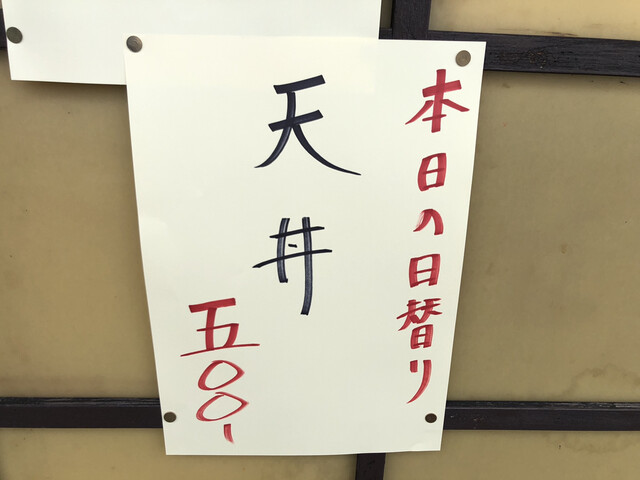 本日の日替り
天丼
五〇〇-